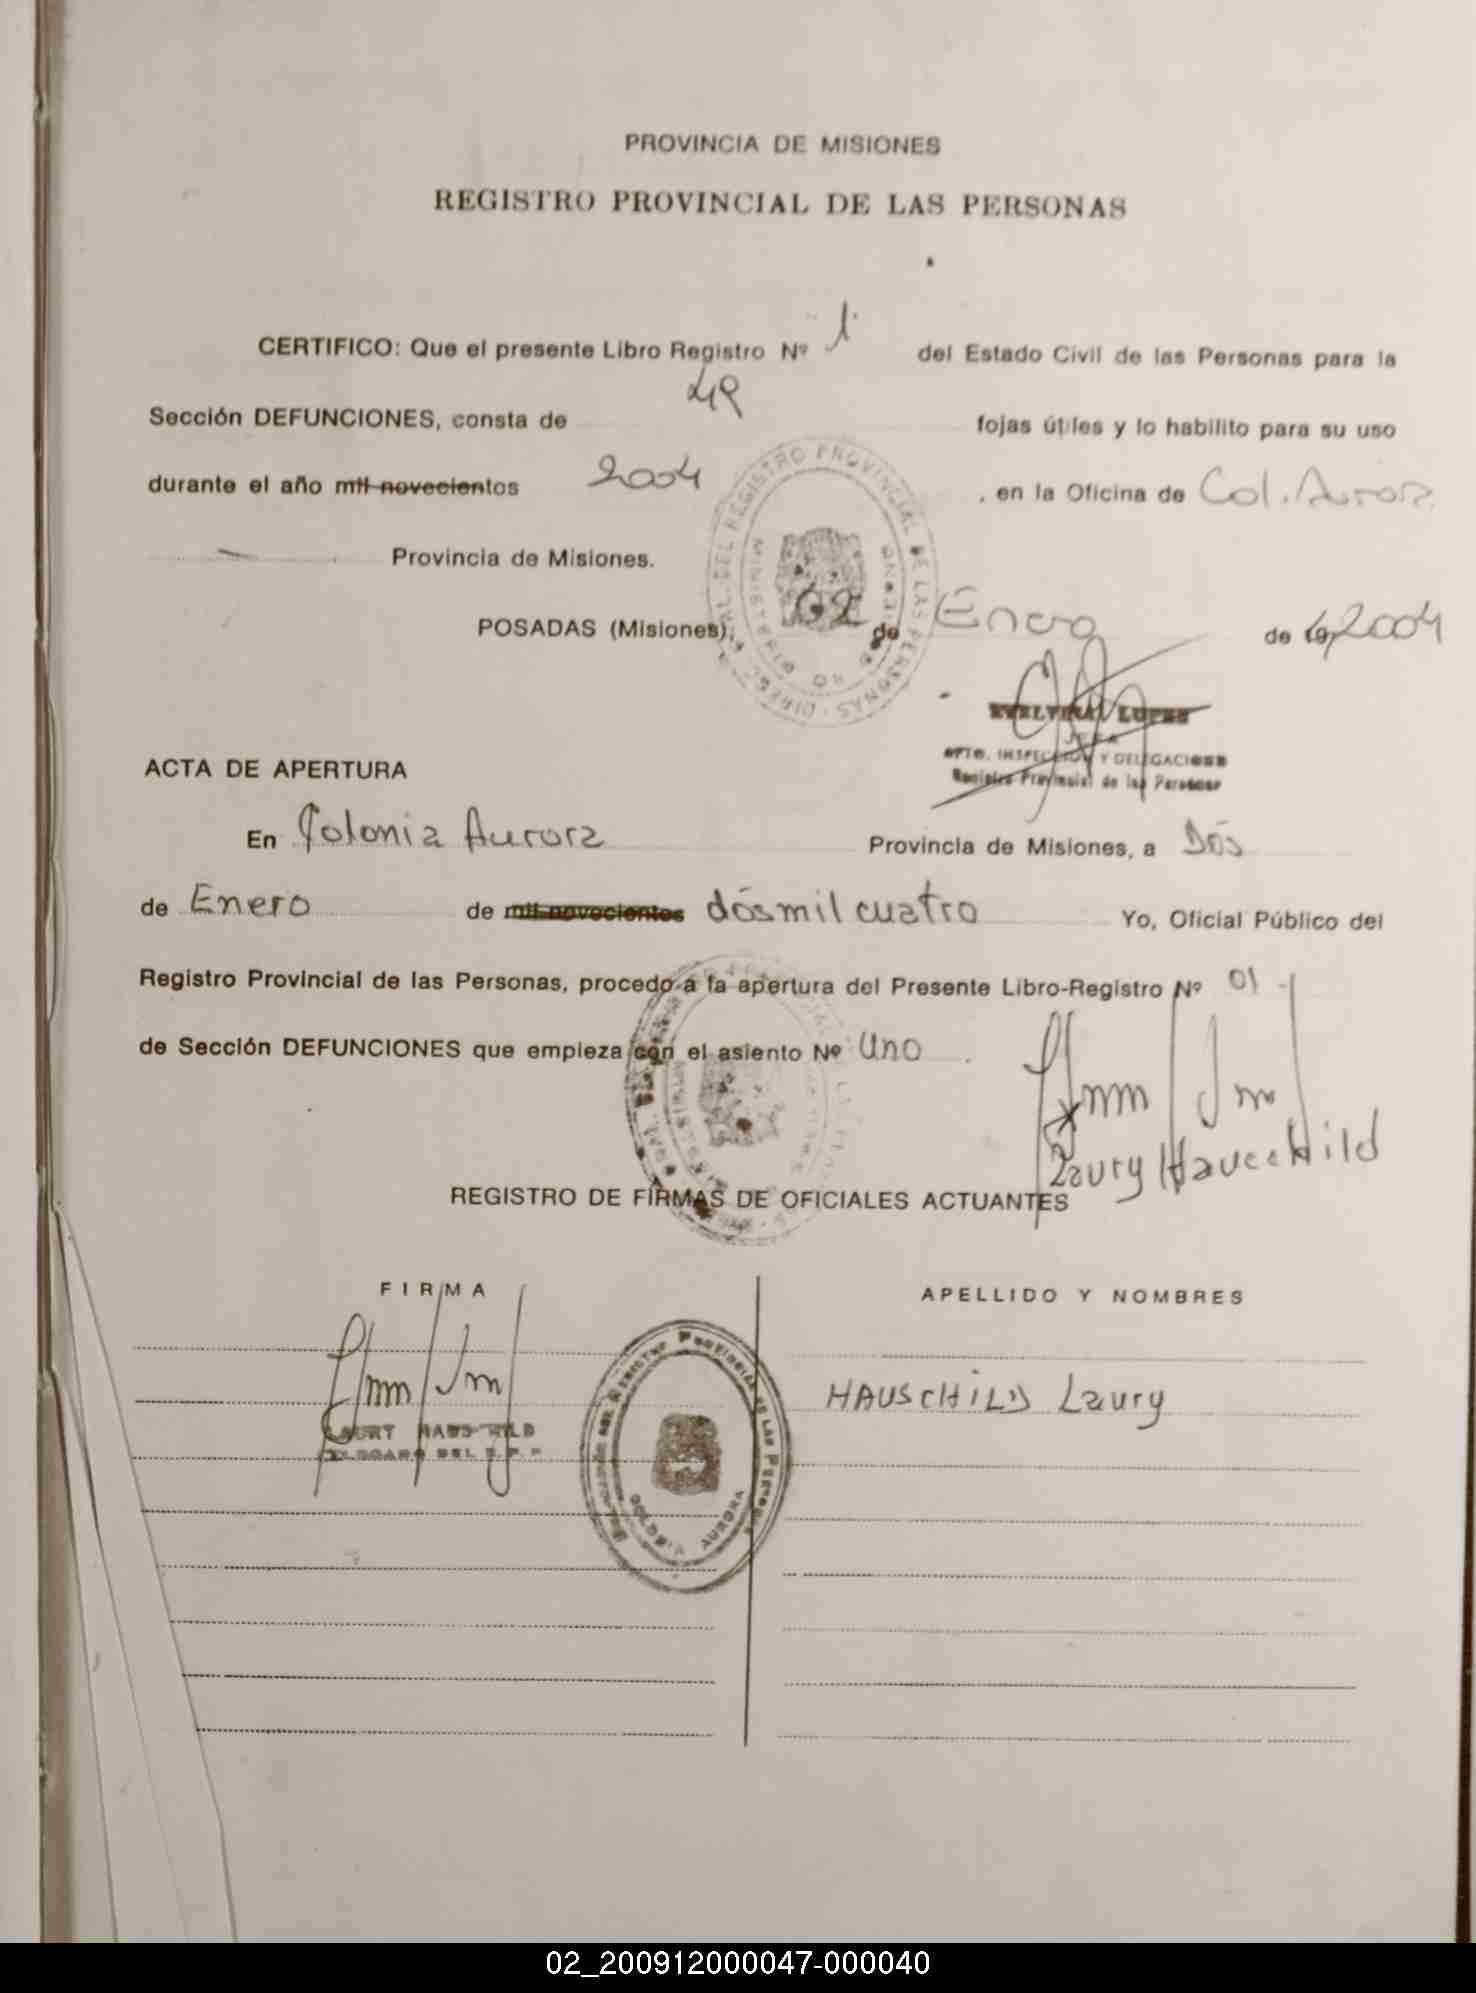 PROVINCIA DE MISIONES
REGISTRO PROVINCIAL DE LAS PERSONAS
CERTIFICO: Que el presente Libro Registro Nº 1 del Estado Civil de las Personas para la
Sección DEFUNCIONES, consta de 49 fojas útiles y lo habilito para su uso
durante el año mil novecientos 2004, en la Oficina de Col. Aurora
Provincia de Misiones.
POSADAS (Misiones), 02 de Enero de 19 2004
LOPEZ
JEFA
DPTO. INSPECCION Y DELEGACIONES
Registro Provincial de las Personas
ACTA DE APERTURA
En Colonia Aurora Provincia de Misiones, a Dós
de Enero de mil novecientos dósmil cuatro Yo, Oficial Público del
Registro Provincial de las Personas, procedo a la apertura del Presente Libro-Registro Nº 01
de Sección DEFUNCIONES que empieza con el asiento Nº Uno
Laury Hauschild
REGISTRO DE FIRMAS DE OFICIALES ACTUANTES
FIRMA APELLIDO Y NOMBRES
HAUSCHILD Laury
LAURY HAUSCHILD
COLONIA AURORA
02_200912000047-000040